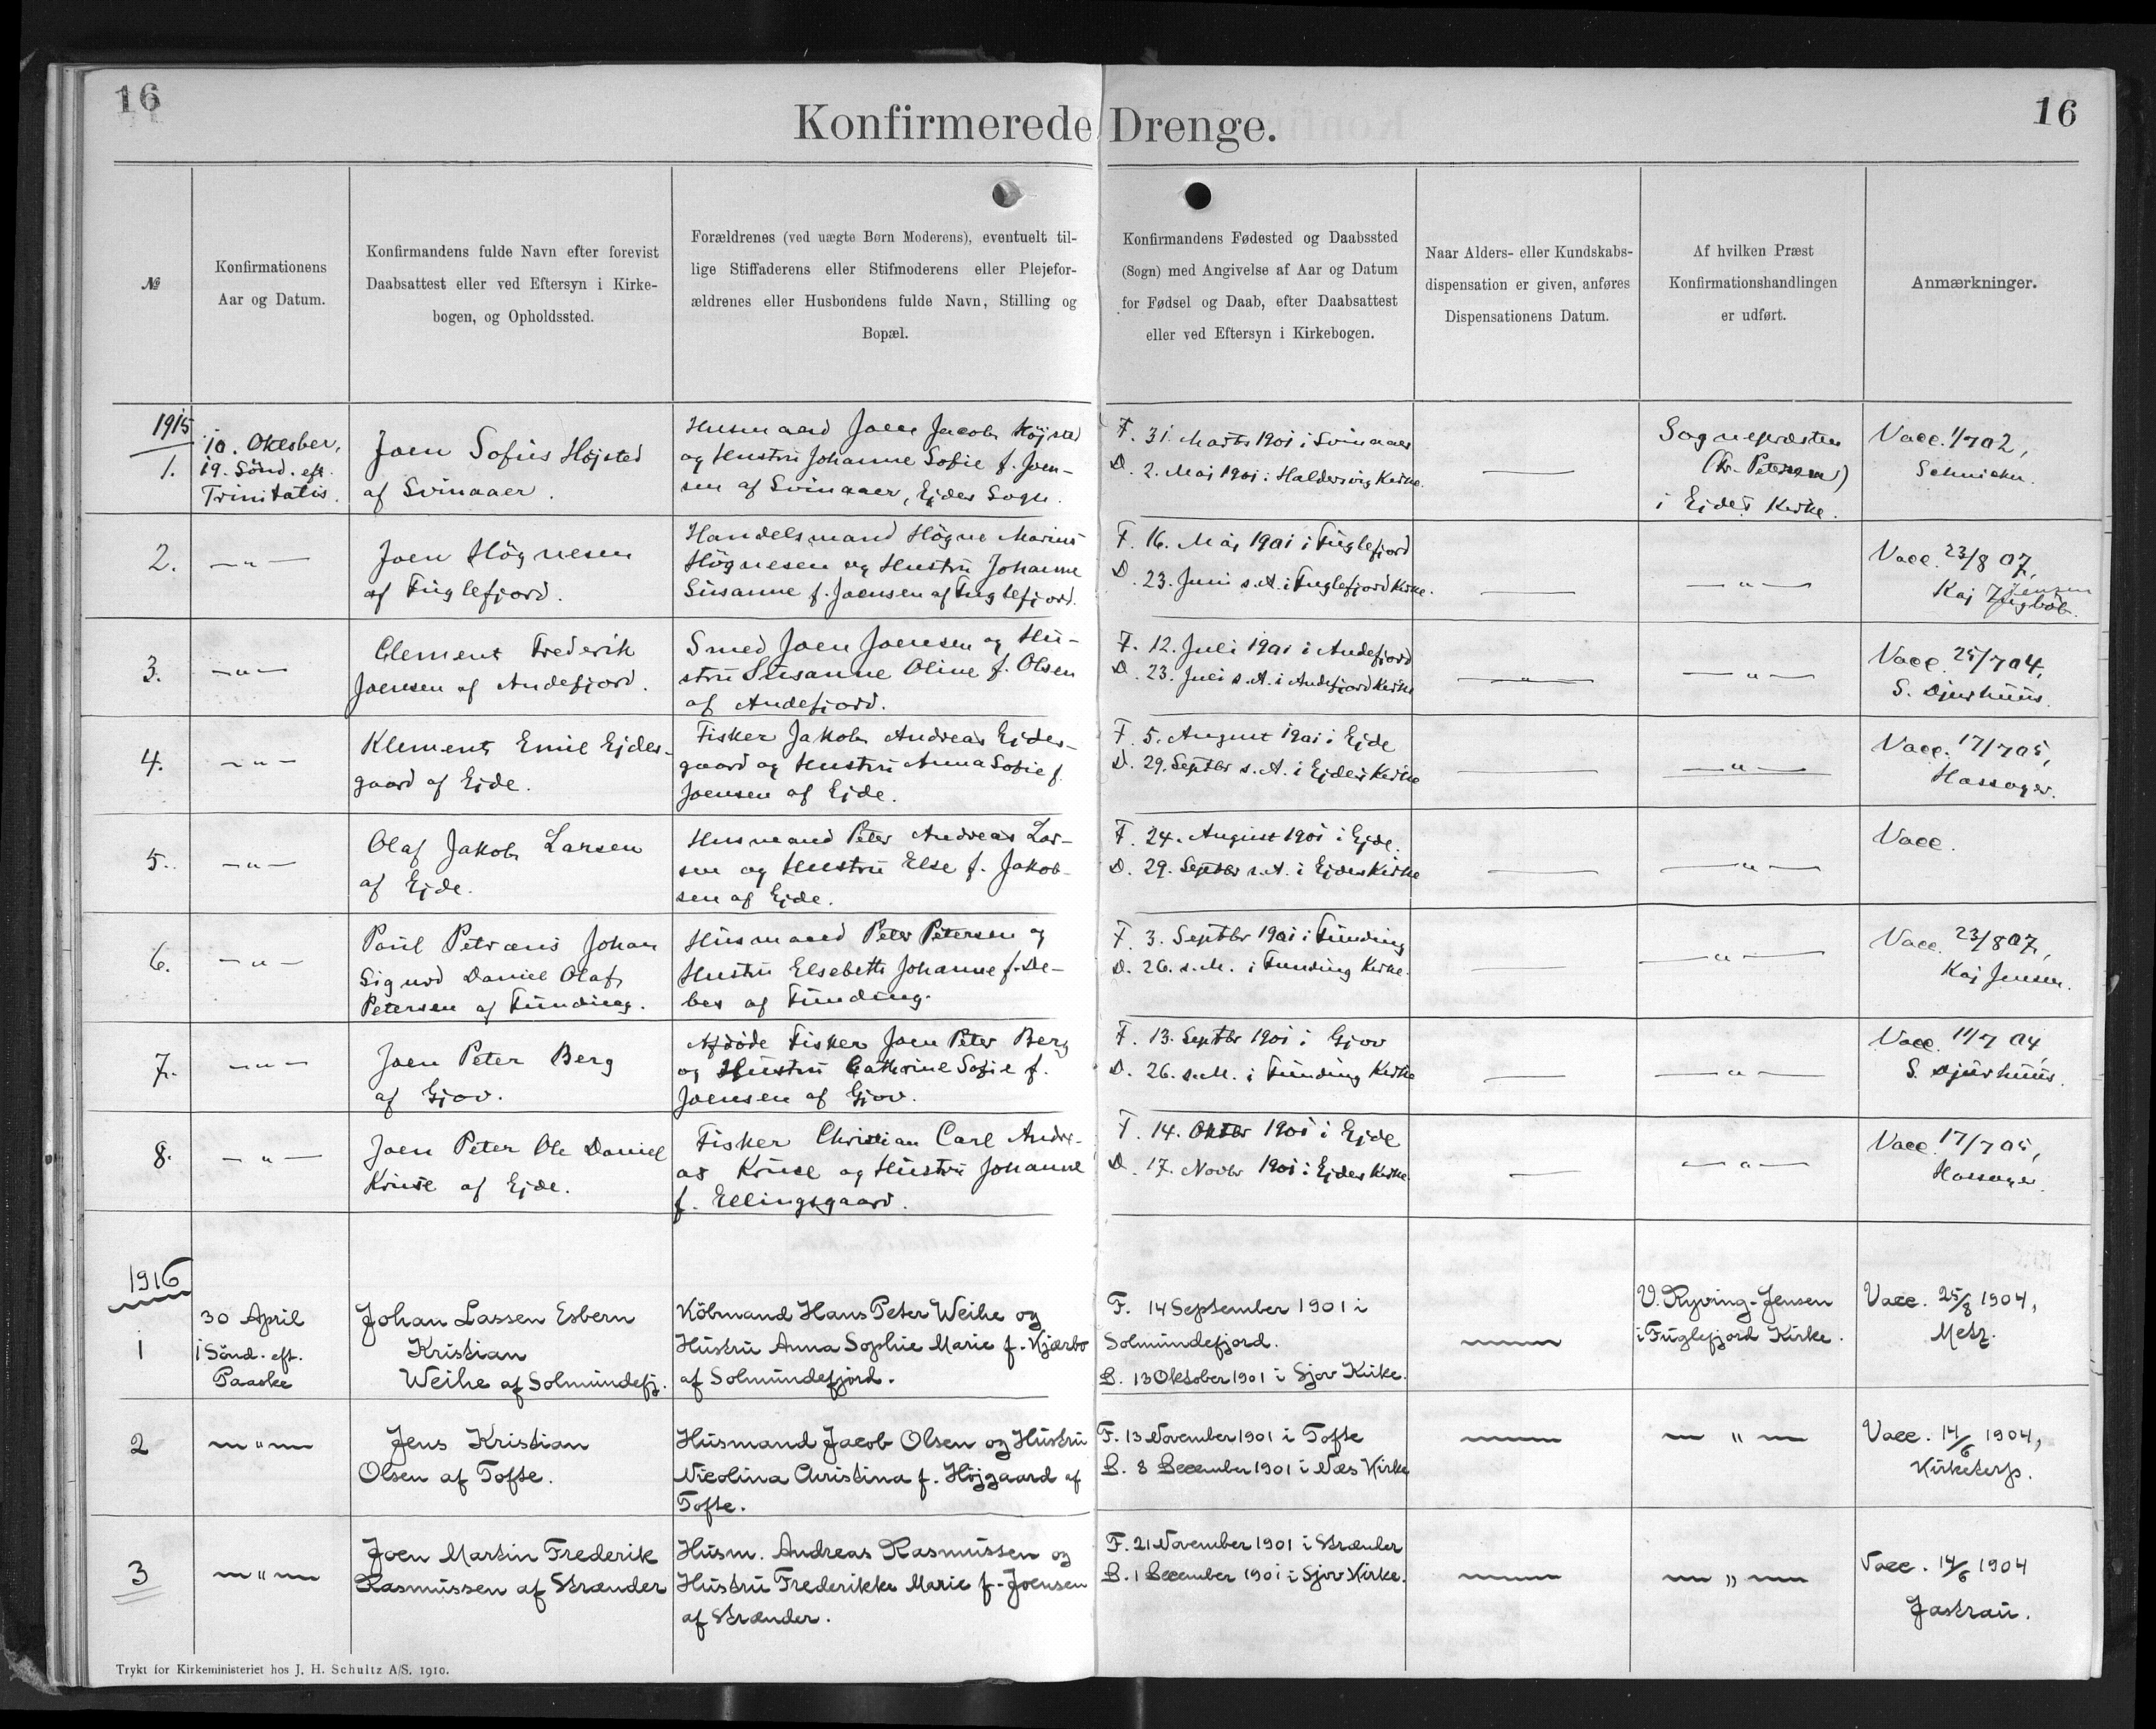 16
16
Konfirmerede Drenge.
№
Konfirmationens
Aar og Datum.
Konfirmandens fulde Navn efter forevist
Daabsattest eller ved Eftersyn i Kirke-
bogen, og Opholdssted.
Forældrenes (ved uægte Børn Moderens), eventuelt til-
lige Stiffaderens eller Stifmoderens eller Plejefor-
ældrenes eller Husbondens fulde Navn, Stilling og
Bopæl.
Konfirmandens Fødested og Daabssted
(Sogn) med Angivelse af Aar og Datum
for Fødsel og Daab, efter Daabsattest
eller ved Eftersyn i Kirkebogen.
Naar Alders- eller Kundskabs-
dispensation er given, anføres
Dispensationens Datum.
Af hvilken Præst
Konfirmationshandlingen
er udført.
Anmærkninger.
1915
1.
10. Oktober,
19. Sönd. eft.
Trinitatis.
Joen Sofus Höjsted
af Svinaaer.
Husmand Joen Jacob Höjsted
og Hustru Johanne Sofie f. Joen-
sen af Svinaaer, Ejdes Sogn.
F. 31. Marts 1901 i Svinaaer
D. 2. Maj 1901 i Haldersvig Kirke.
—
Sognepræsten
(Kr. Petersen)
i Ejdes Kirke.
Vacc. 1/7 02,
2.
— " —
Joen Högnesen
af Fuglefjord.
Handelsmand Högne Marius
Högnesen og Hustru Johanne
Susanne f. Joensen af Fuglefjord.
F. 16. Maj 1901 i Fuglefjord
D. 23. Juni s. A. i Fuglefjord Kirke.
—
— " —
Vacc. 23/8 07,
Kaj Jensen
3.
— " —
Clement Frederik
Joensen af Andefjord.
Smed Joen Joensen og Hu-
stru Susanne Oline f. Olsen
af Andefjord.
F. 12. Juli 1901 i Andefjord
D. 23. Juli s. A. i Andefjord Kirke
— " —
— " —
Vacc. 25/7 04,
S. Djurhuus.
4.
— " —
Klement Emil Ejdes-
gaard af Ejde.
Fisker Jakob Andreas Ejdes-
gaard og Hustru Anna Sofie f.
Joensen af Ejde.
F. 5. August 1901 i Ejde
D. 29. Septbr s. A. i Ejdes Kirke
—
— " —
Vacc. 17/7 05,
Hassager.
5.
— " —
Olaf Jakob Larsen
af Ejde.
Husmand Peter Andreas Lar-
sen og Hustru Else f. Jakob-
sen af Ejde.
F. 24. August 1901 i Ejde.
D. 29. Septbr s. A. i Ejdes Kirke
—
— " —
Vacc.
6.
— " —
Poul Petræus Johan
Sigurd Daniel Olaf
Petersen af Funding.
Husmand Peter Petersen og
Hustru Elsebeth Johanne f. De-
bes af Funding.
F. 3. Septbr 1901 i Funding
D. 26. s. M. i Funding Kirke.
—
— " —
Vacc. 23/8 07,
Kaj Jensen.
7.
— " —
Joen Peter Berg
af Gjov.
Afdöde Fisker Joen Peter Berg
og Hustru Cathrine Sofie f.
Joensen af Gjov.
F. 13. Septbr 1901 i Gjov
D. 26. s. M. i Funding Kirke
—
— " —
Vacc. 11/7 04,
S. Djurhuus.
8.
— " —
Joen Peter Ole Daniel
Kruse af Ejde.
Fisker Christian Carl Andre-
as Kruse og Hustru Johanne
f. Ellingsgaard.
F. 14. Oktbr 1901 i Ejde
D. 17. Novbr 1901 i Ejdes Kirke.
—
— " —
Vacc. 17/7 05,
Hassager.
1916
1
30 April
1 Sönd. eft.
Paaske
Johan Lassen Esbern
Kristian
Weihe af Solmundefj.
Köbmand Hans Peter Weihe og
Hustru Anna Sophie Marie f. Kjærbo
af Solmundefjord.
F. 14 September 1901 i
Solmundefjord.
D. 13 Oktober 1901 i Gjov Kirke.
—
V. Ryving-Jensen
i Fuglefjord Kirke.
Vacc. 25/8 1904,
Metz.
2
— " —
Jens Kristian
Olsen af Tofte.
Husmand Jacob Olsen og Hustru
Nicolina Christina f. Höjgaard af
Tofte.
F. 13 November 1901 i Tofte
D. 8 December 1901 i Næs Kirke
—
— " —
Vacc. 14/6 1904,
Kirketerp.
3
— " —
Joen Martin Frederik
Rasmussen af Strænder
Husm. Andreas Rasmussen og
Hustru Frederikke Marie f. Joensen
af Strænder.
F. 21 November 1901 i Strænder
D. 1 December 1901 i Gjov Kirke.
—
— " —
Vacc. 14/6 1904
Jastrau.
Trykt for Kirkeministeriet hos J. H. Schultz A/S. 1910.